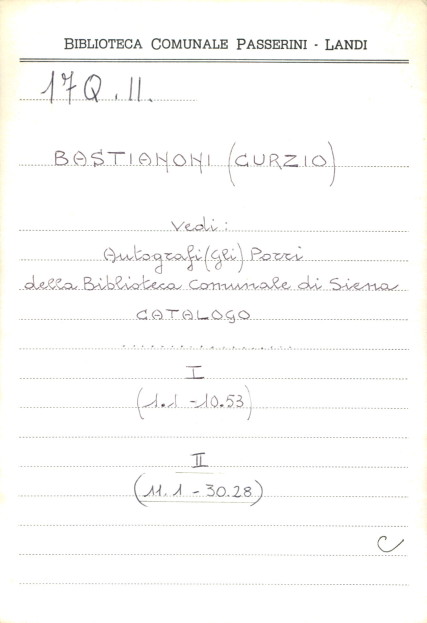 BIBLIOTECA COMUNALE PASSERINI - LANDI
17Q.II.
BASTIANONI (CURZIO)
Vedi:
Autografi (Gli) Porri
della Biblioteca Comunale di Siena
CATALOGO
..................
I
(1.1 - 10.53)
II
(11.1 - 30.28)
C